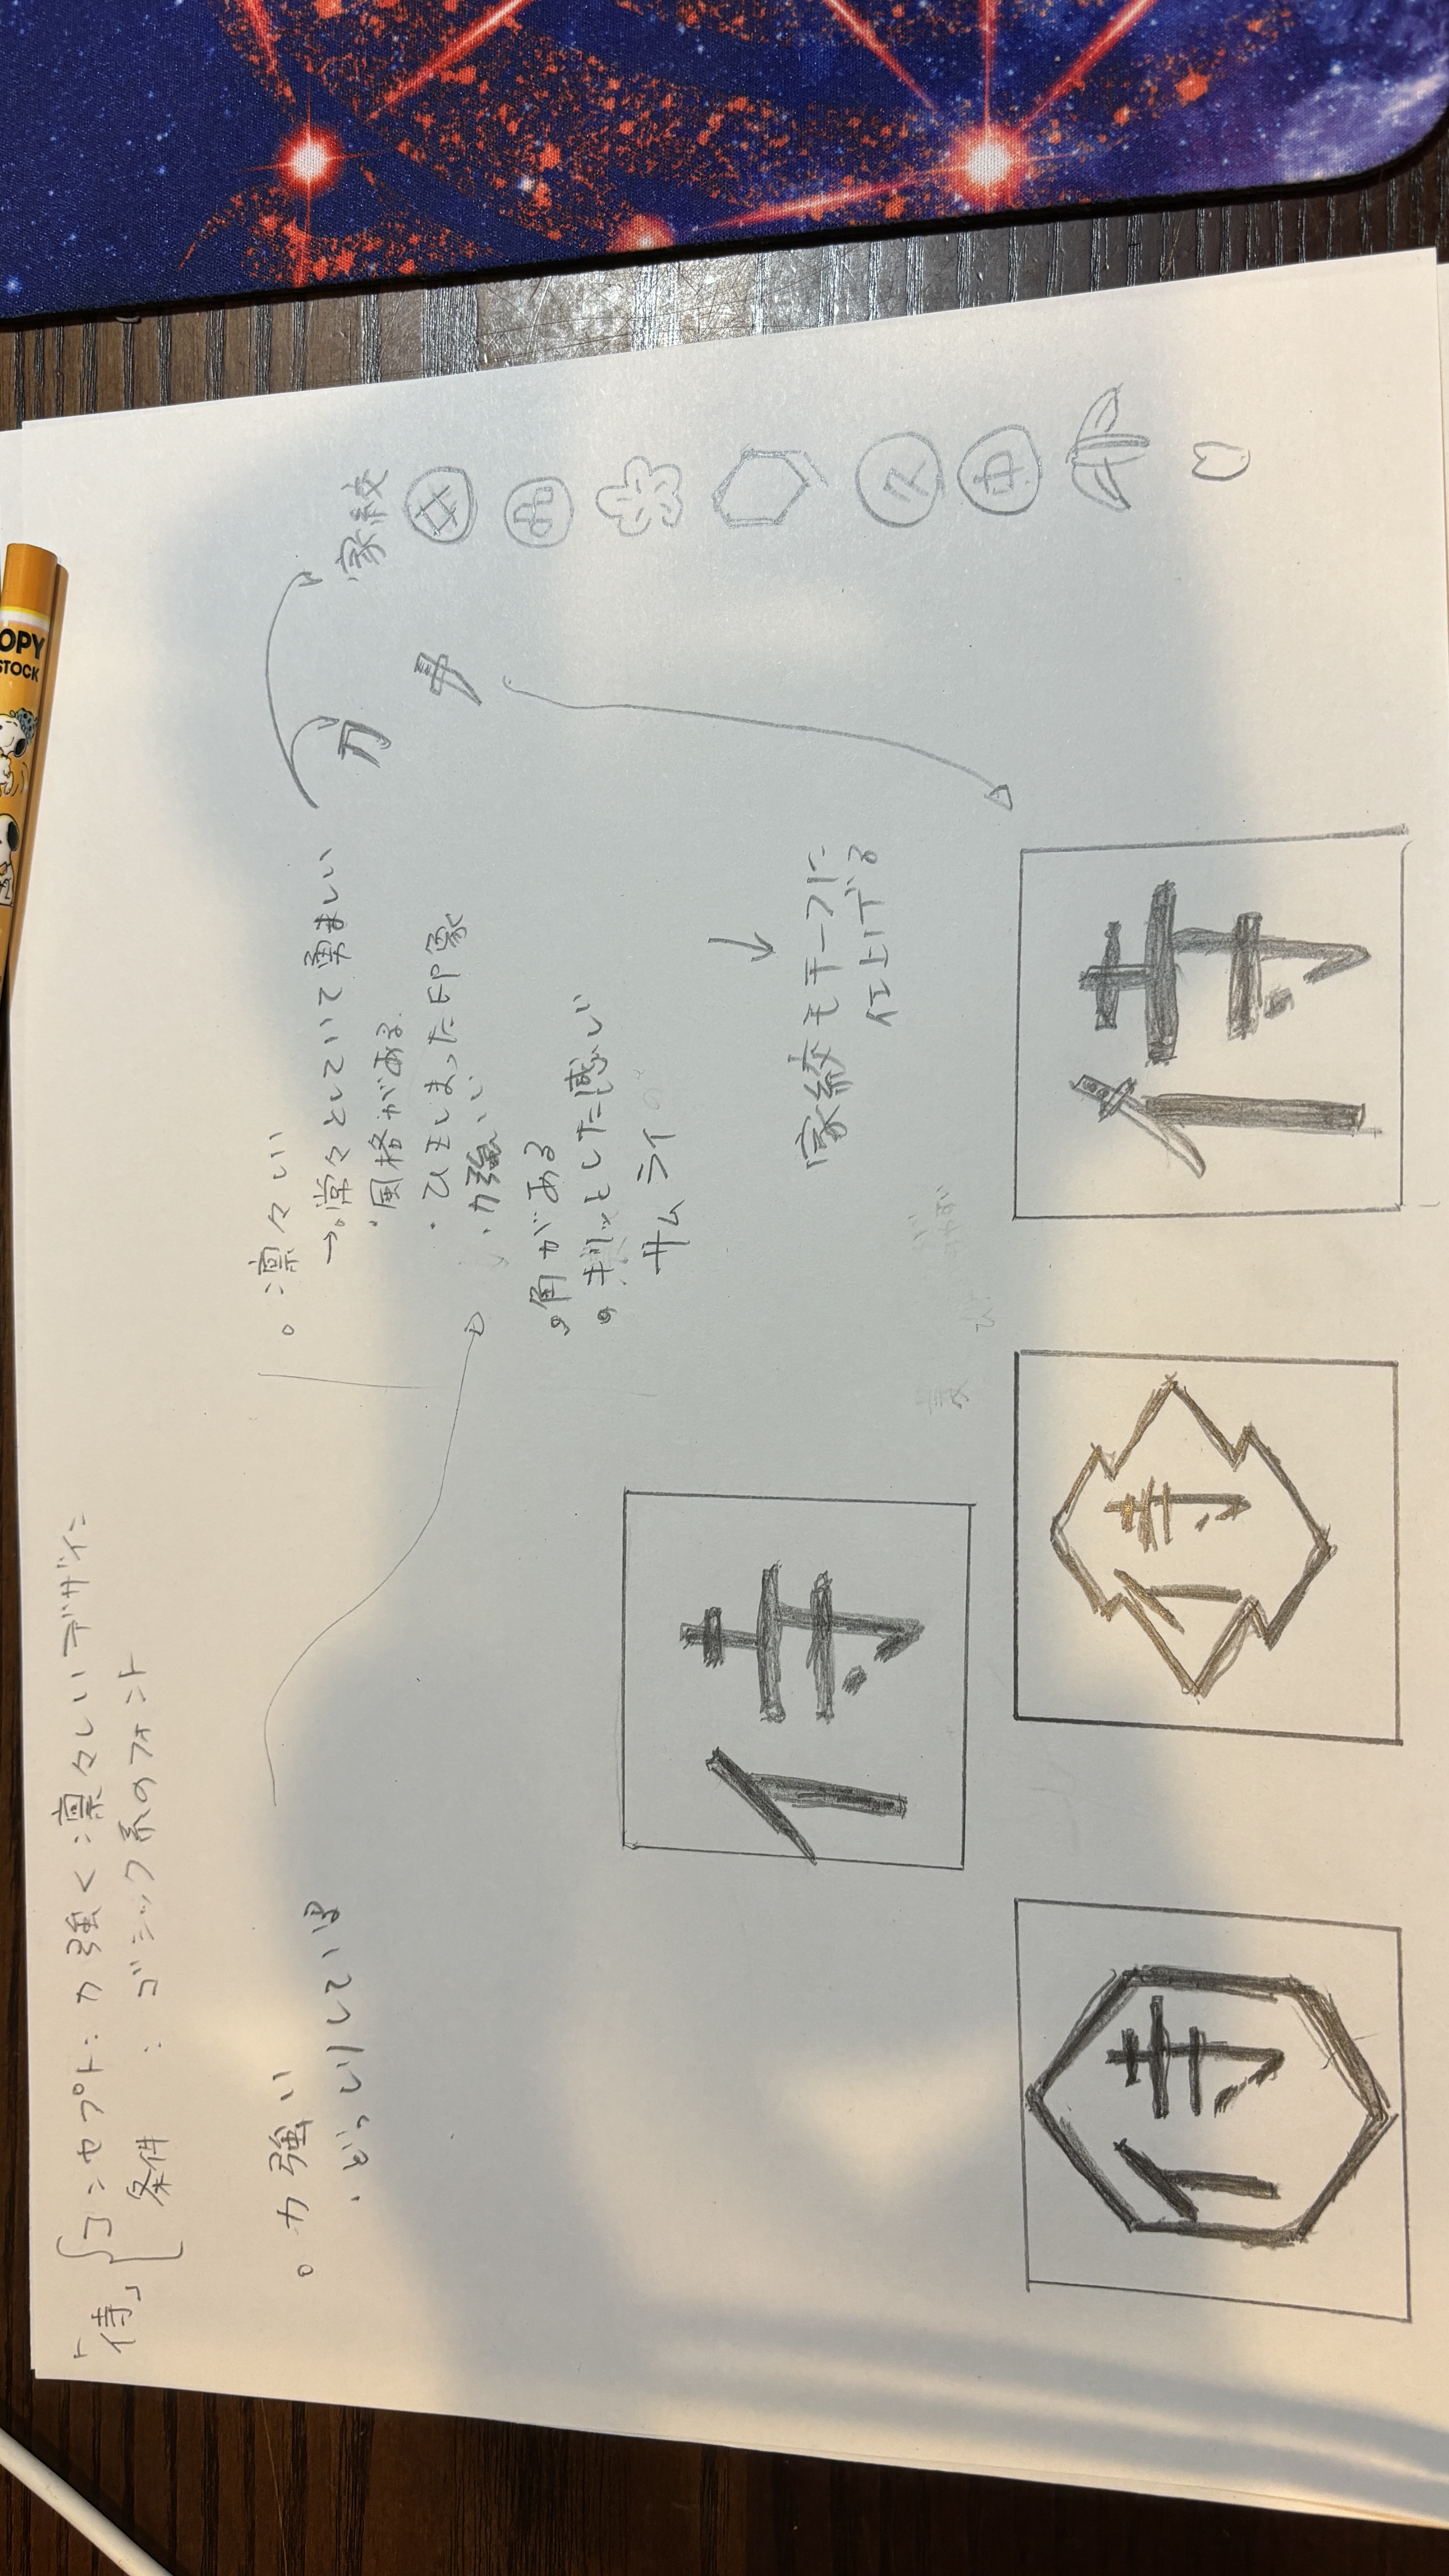 「侍」
コンセプト: 力強く凛々しいデザイン
条件 : ゴシック系のフォント
。力強い
・どっしりしている
。凛々しい
→。堂々としていて勇ましい
・風格がある
・ひきしまった印象
・力強い
。角がある
。キリッとした感じ
サムライ
刀
家紋
井
家紋モチーフに
仕上げる
侍
侍
侍
侍
OPY
STOCK